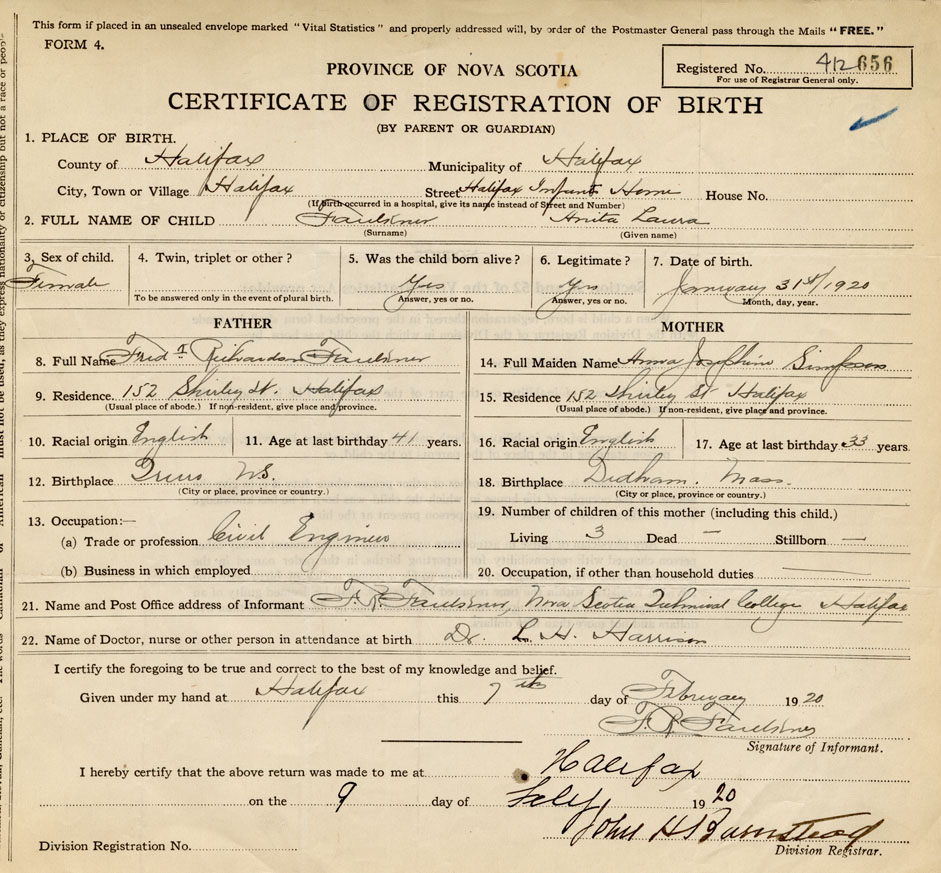 This form if placed in an unsealed envelope marked "Vital Statistics" and properly addressed will, by order of the Postmaster General pass through the Mails "FREE."
FORM 4.
PROVINCE OF NOVA SCOTIA
Registered No. 412656
For use of Registrar General only.
CERTIFICATE OF REGISTRATION OF BIRTH
(BY PARENT OR GUARDIAN)
1. PLACE OF BIRTH.
County of Halifax Municipality of Halifax
City, Town or Village Halifax Street Halifax Infants Home House No.
(If birth occurred in a hospital, give its name instead of Street and Number)
2. FULL NAME OF CHILD Faulkner Anita Laura
(Surname) (Given name)
3. Sex of child. 4. Twin, triplet or other? 5. Was the child born alive? 6. Legitimate? 7. Date of birth.
Female Yes Yes January 31st/1920
To be answered only in the event of plural birth. Answer, yes or no. Answer, yes or no. Month, day, year.
FATHER
8. Full Name Richardson Faulkner
9. Residence. 152 Shirley St. Halifax
(Usual place of abode.) If non-resident, give place and province.
10. Racial origin English 11. Age at last birthday 41 years.
12. Birthplace Truro N.S.
(City or place, province or country.)
13. Occupation:—
(a) Trade or profession Civil Engineer
(b) Business in which employed
MOTHER
14. Full Maiden Name Anna Josephine Simpson
15. Residence 152 Shirley St Halifax
(Usual place of abode.) If non-resident, give place and province.
16. Racial origin English 17. Age at last birthday 33 years.
18. Birthplace Dedham. Mass.
(City or place, province or country.)
19. Number of children of this mother (including this child.)
Living 3 Dead — Stillborn —
20. Occupation, if other than household duties
21. Name and Post Office address of Informant F. R. Faulkner, Nova Scotia Technical College Halifax
22. Name of Doctor, nurse or other person in attendance at birth. Dr. L. H. Harrison
I certify the foregoing to be true and correct to the best of my knowledge and belief.
Given under my hand at Halifax this 7th day of February 1920
F. R. Faulkner
Signature of Informant.
I hereby certify that the above return was made to me at Halifax
on the 9 day of Feby 1920
John H Barnstead
Division Registration No. Division Registrar.